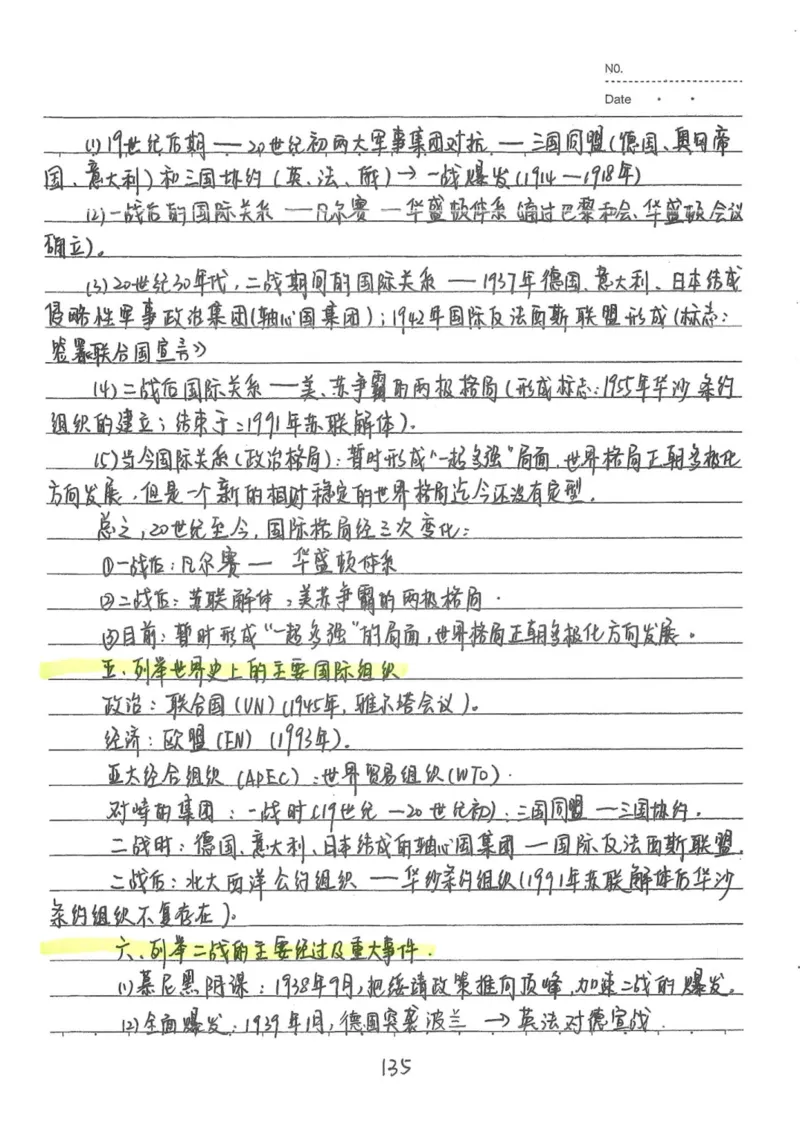 NO.
Date
(1) 19世纪后期 — 20世纪初两大军事集团对抗 — 三国同盟(德国、奥匈帝
国、意大利)和三国协约(英、法、俄)→一战爆发(1914—1918年)
(2)一战后的国际关系 — 凡尔赛 — 华盛顿体系(通过巴黎和会、华盛顿会议
确立)。
(3)20世纪30年代,二战期间的国际关系 — 1937年德国、意大利、日本结成
侵略性军事政治集团(轴心国集团);1942年国际反法西斯联盟形成(标志:
签署联合国宣言》)
(4)二战后国际关系 — 美、苏争霸的两极格局(形成标志:1955年华沙条约
组织的建立;结束于:1991年苏联解体)。
(5)当今国际关系(政治格局):暂时形成“一超多强”局面,世界格局正朝多极化
方向发展,但是一个新的相对稳定的世界格局迄今还没有定型。
总之,20世纪至今,国际格局经三次变化:
①一战后:凡尔赛 — 华盛顿体系
②二战后:苏联解体:美苏争霸的两极格局.
③目前:暂时形成“一超多强”的局面,世界格局正朝多极化方向发展。
五、列举世界史上的主要国际组织
政治:联合国(UN)(1945年,雅尔塔会议)。
经济:欧盟(EN)(1993年)。
亚太经合组织(APEC):世界贸易组织(WTO).
对峙的集团:一战时(19世纪—20世纪初):三国同盟—三国协约.
二战时:德国、意大利、日本结成的轴心国集团 — 国际反法西斯联盟.
二战后:北大西洋公约组织 — 华约条约组织(1991年苏联解体后华沙
条约组织不复存在)。
六、列举二战的主要经过及重大事件.
(1)慕尼黑阴谋:1938年9月,把绥靖政策推向顶峰,加速二战的爆发。
(2)全面爆发:1939年1月,德国突袭波兰→英法对德宣战.
135